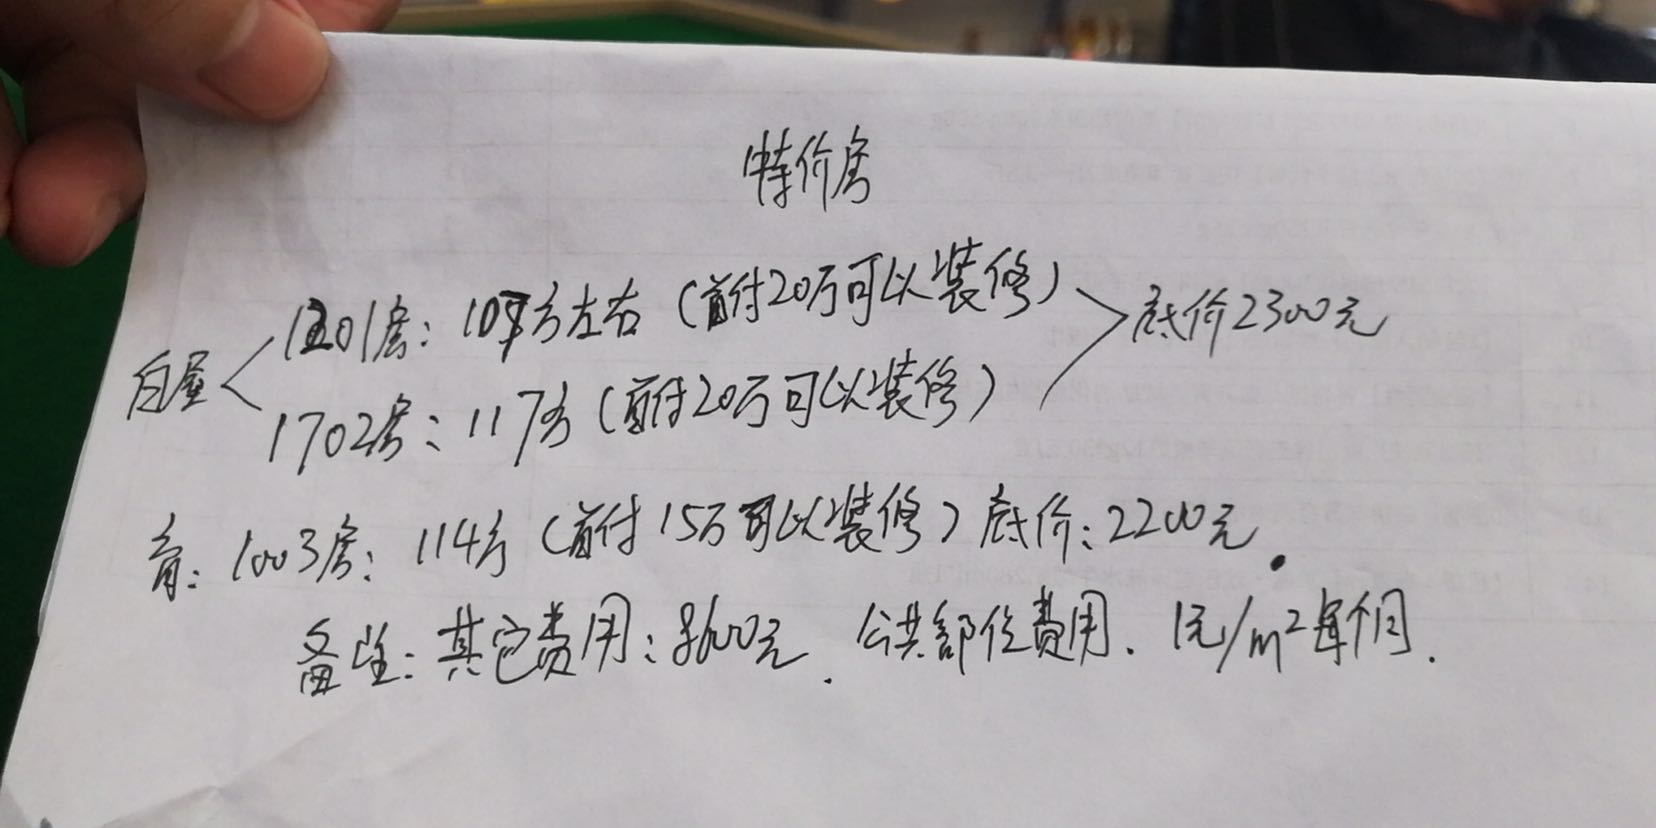 特价房
1201房：109方左右（首付20万可以装修）
1702房：117方（首付20万可以装修）
底价2300元
1003房：114方（首付15万可以装修）底价：2200元.
备注：其它费用：8600元. 公共部位费用. 1元/m²每个月.